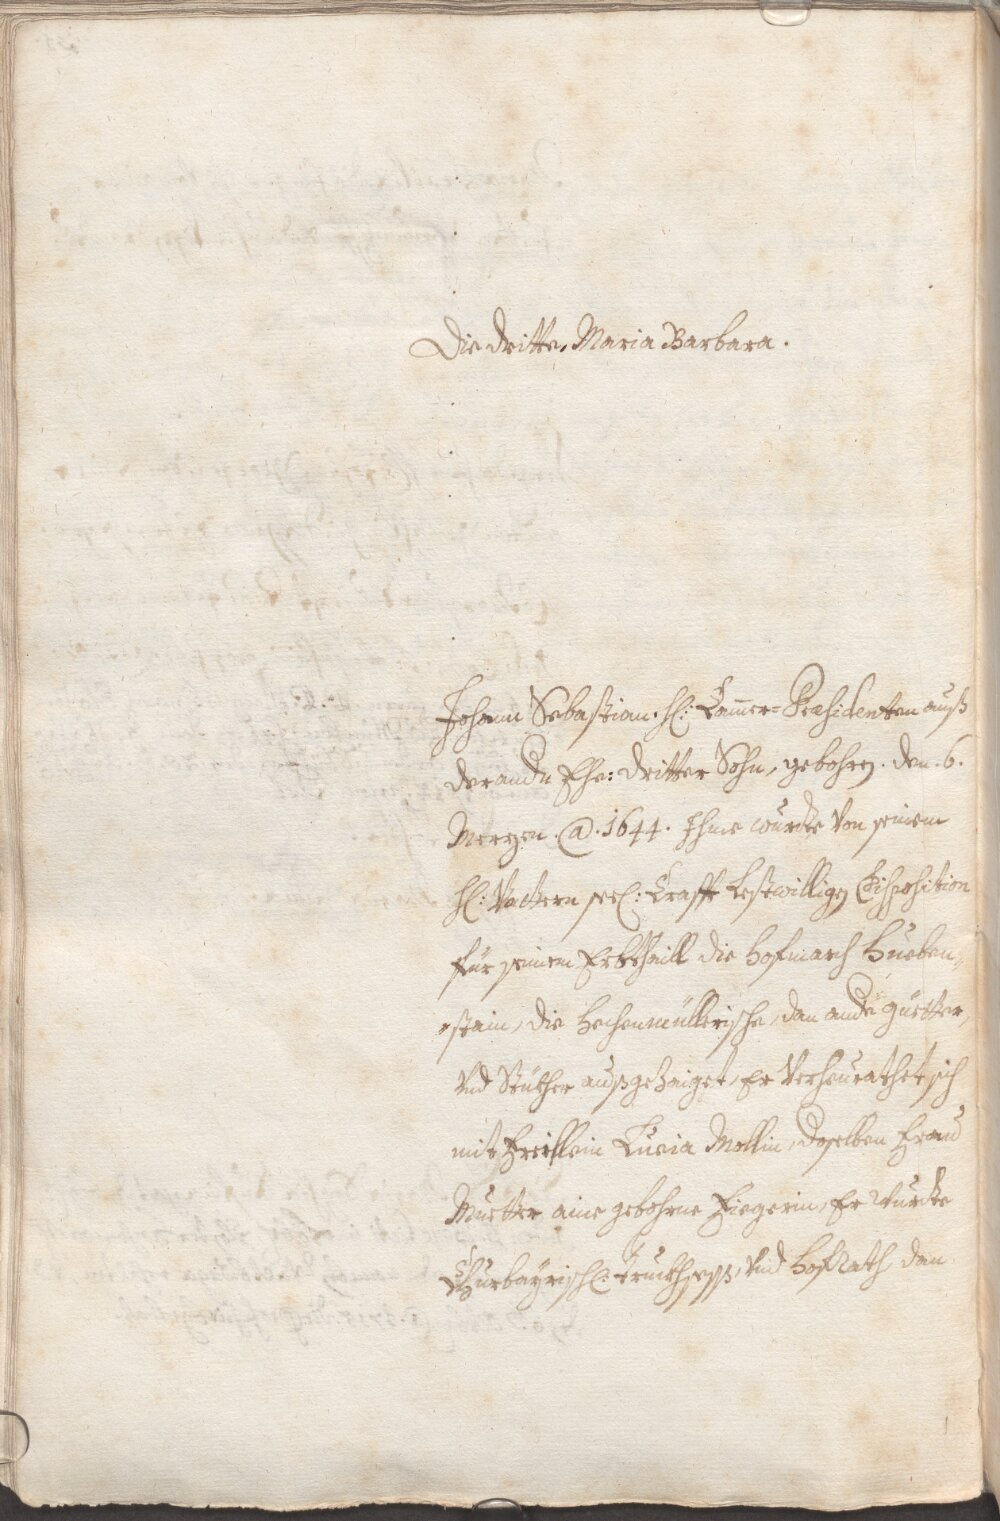 Die dritte, Maria Barbara.
Johann Sebastian. H: Cam̅er-Præsidenten auß
der andn Ehe: dritter Sohn, gebohrn. den. 6.
Merzen. @. 1644. Ihme wurdte von seinem
H: Vattern seel: Crafft Lestwilligen Disposition
für seinem Erbthaill die Hofmarch Hueben-
stain, die Hechenmüllerische, dan ande güetter,
vnd Stükher außgezaiget, Er Verheurathet sich
mit Freillein Lucia Mollin, deselben Frau
Muetter aine gebohrne Fiegerin, Er wurdte
Churbayrisch: Truckhsess, Vnd Hofrath dan